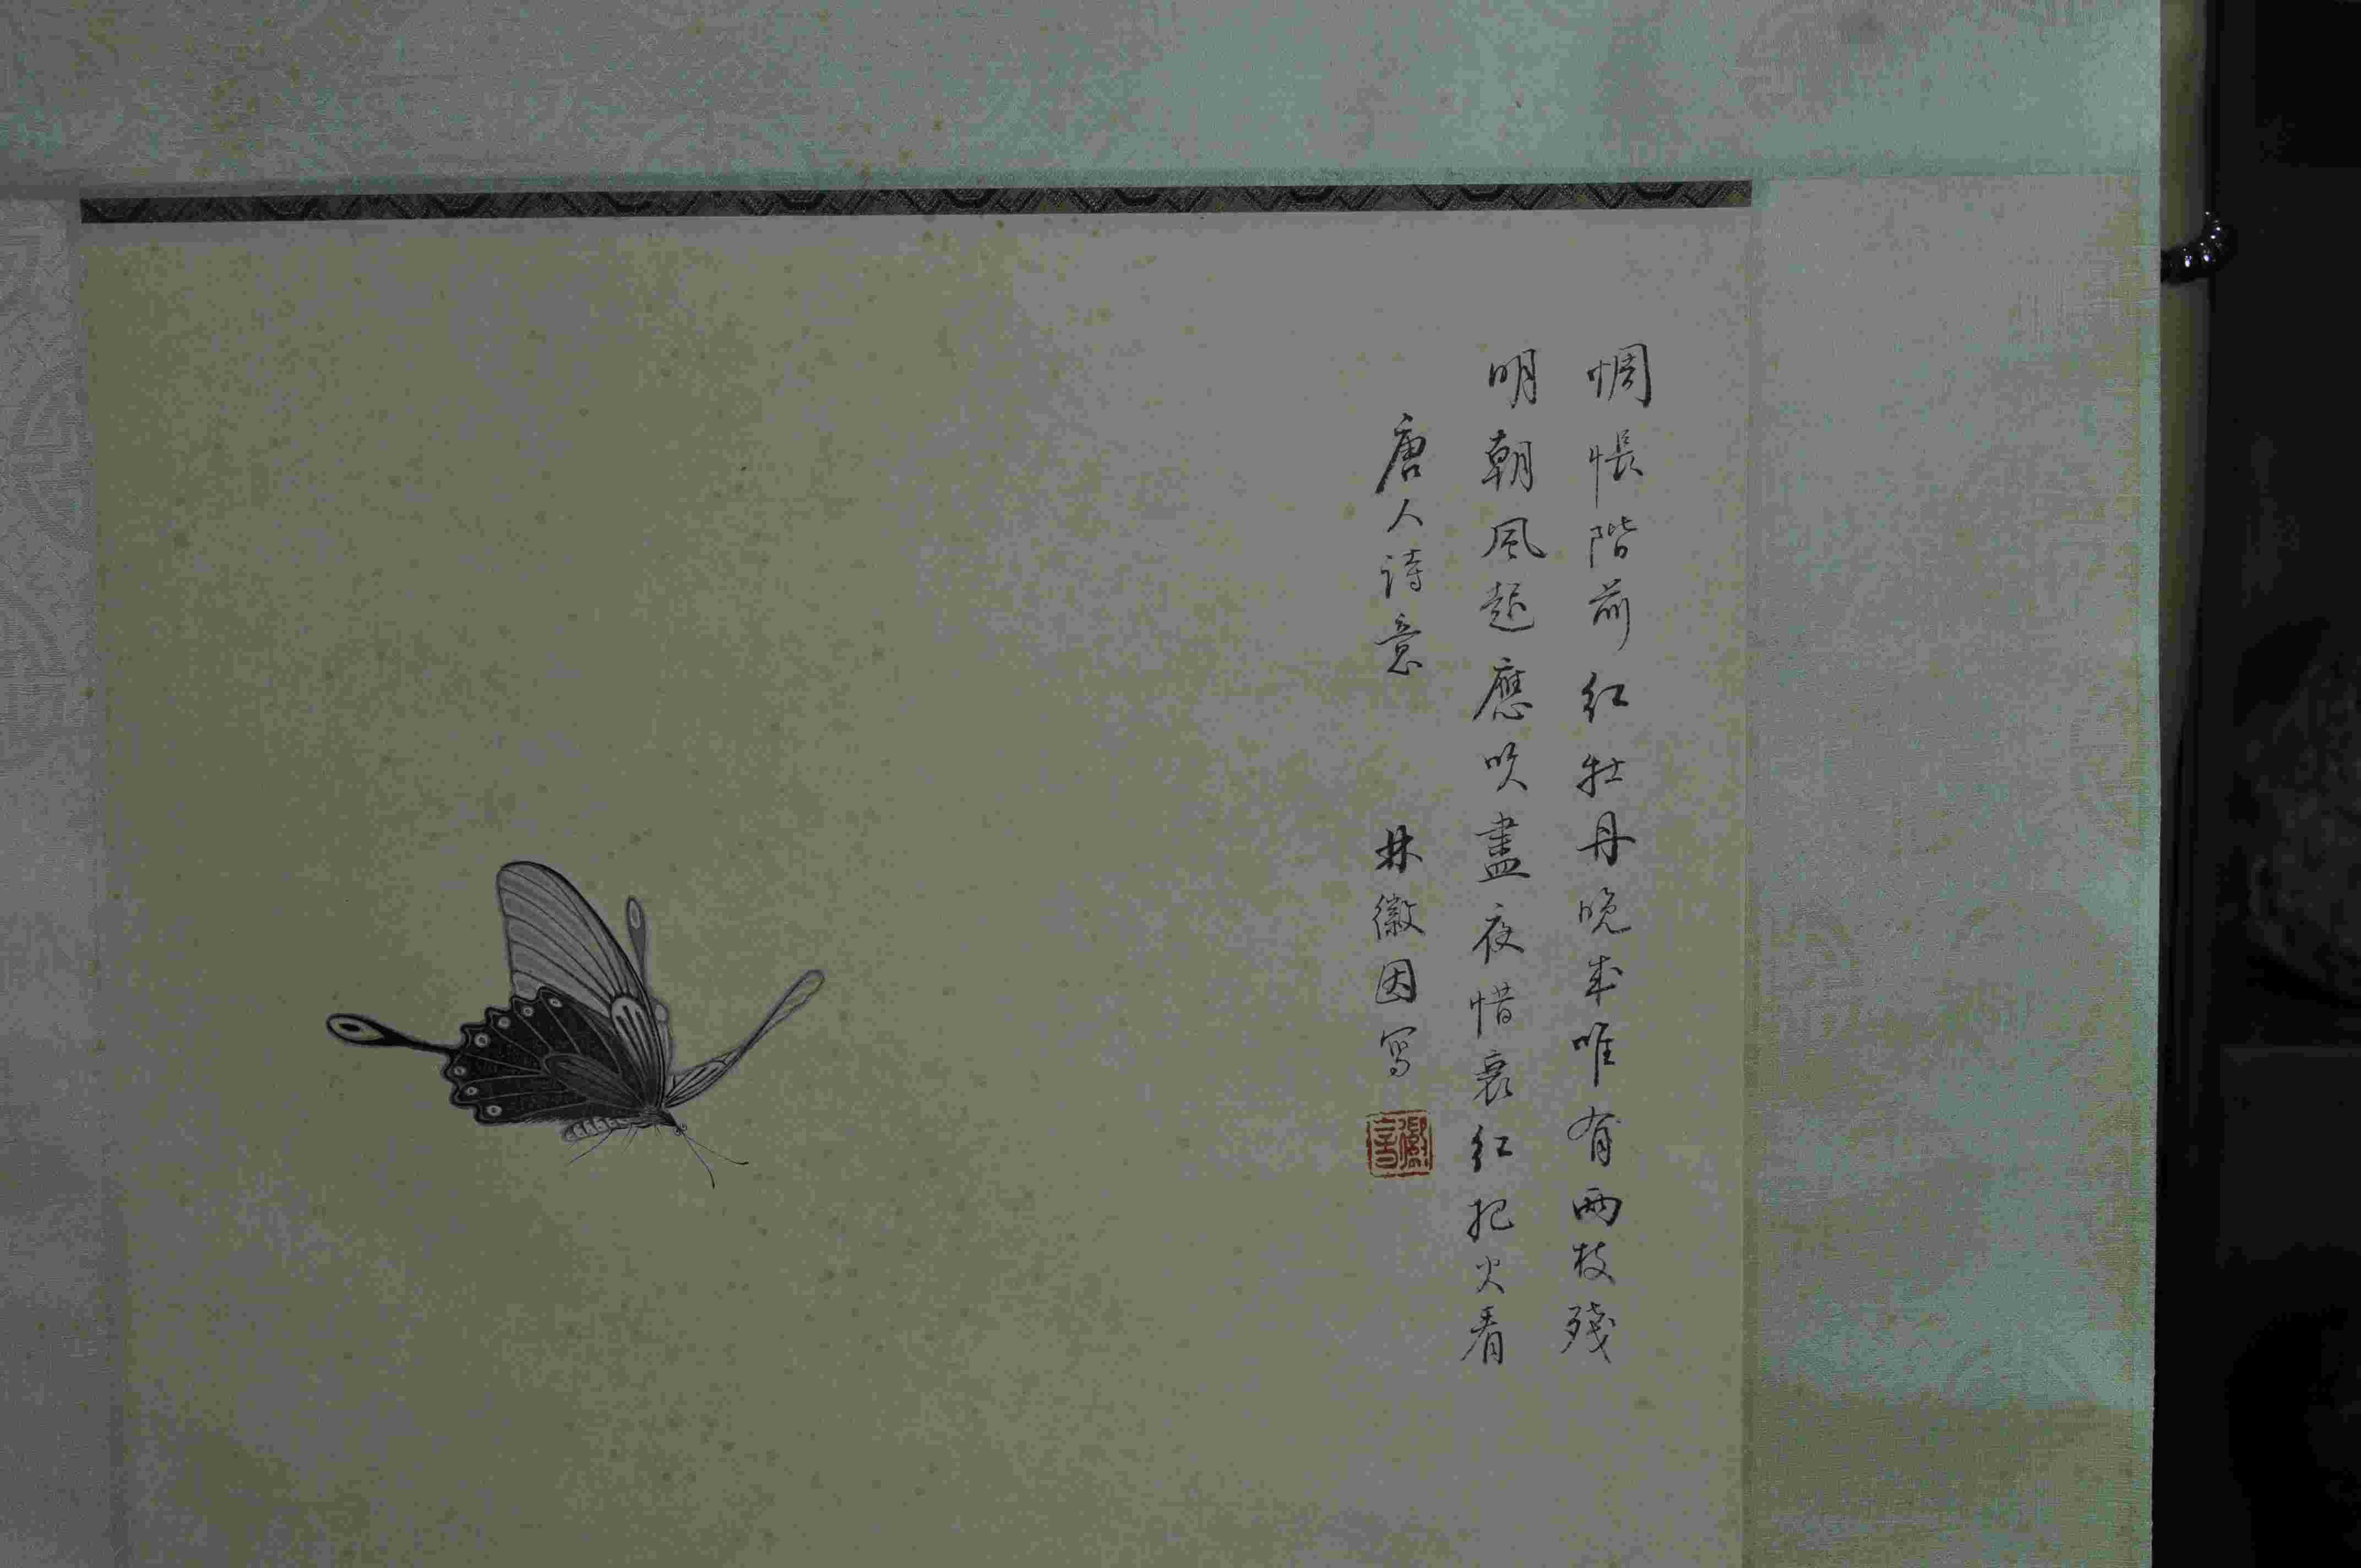 惆悵階前紅牡丹晚来唯有兩枝殘
明朝風起應吹盡夜惜衰紅把火看
唐人詩意
林徽因寫
徽音